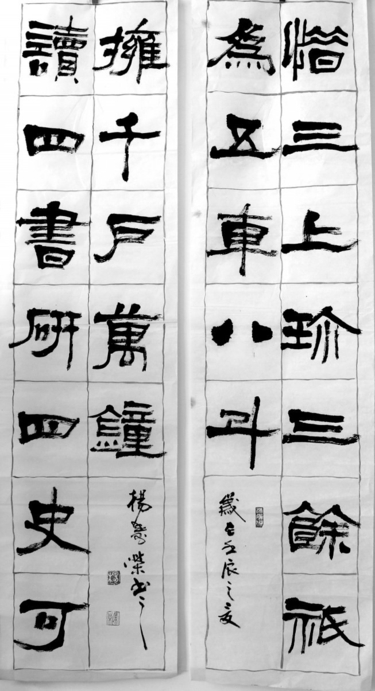 惜三上珍三餘祇
為五車八斗
歲在壬辰之夏
讀四書研四史可
擁千戶萬鐘
楊壽榮书之